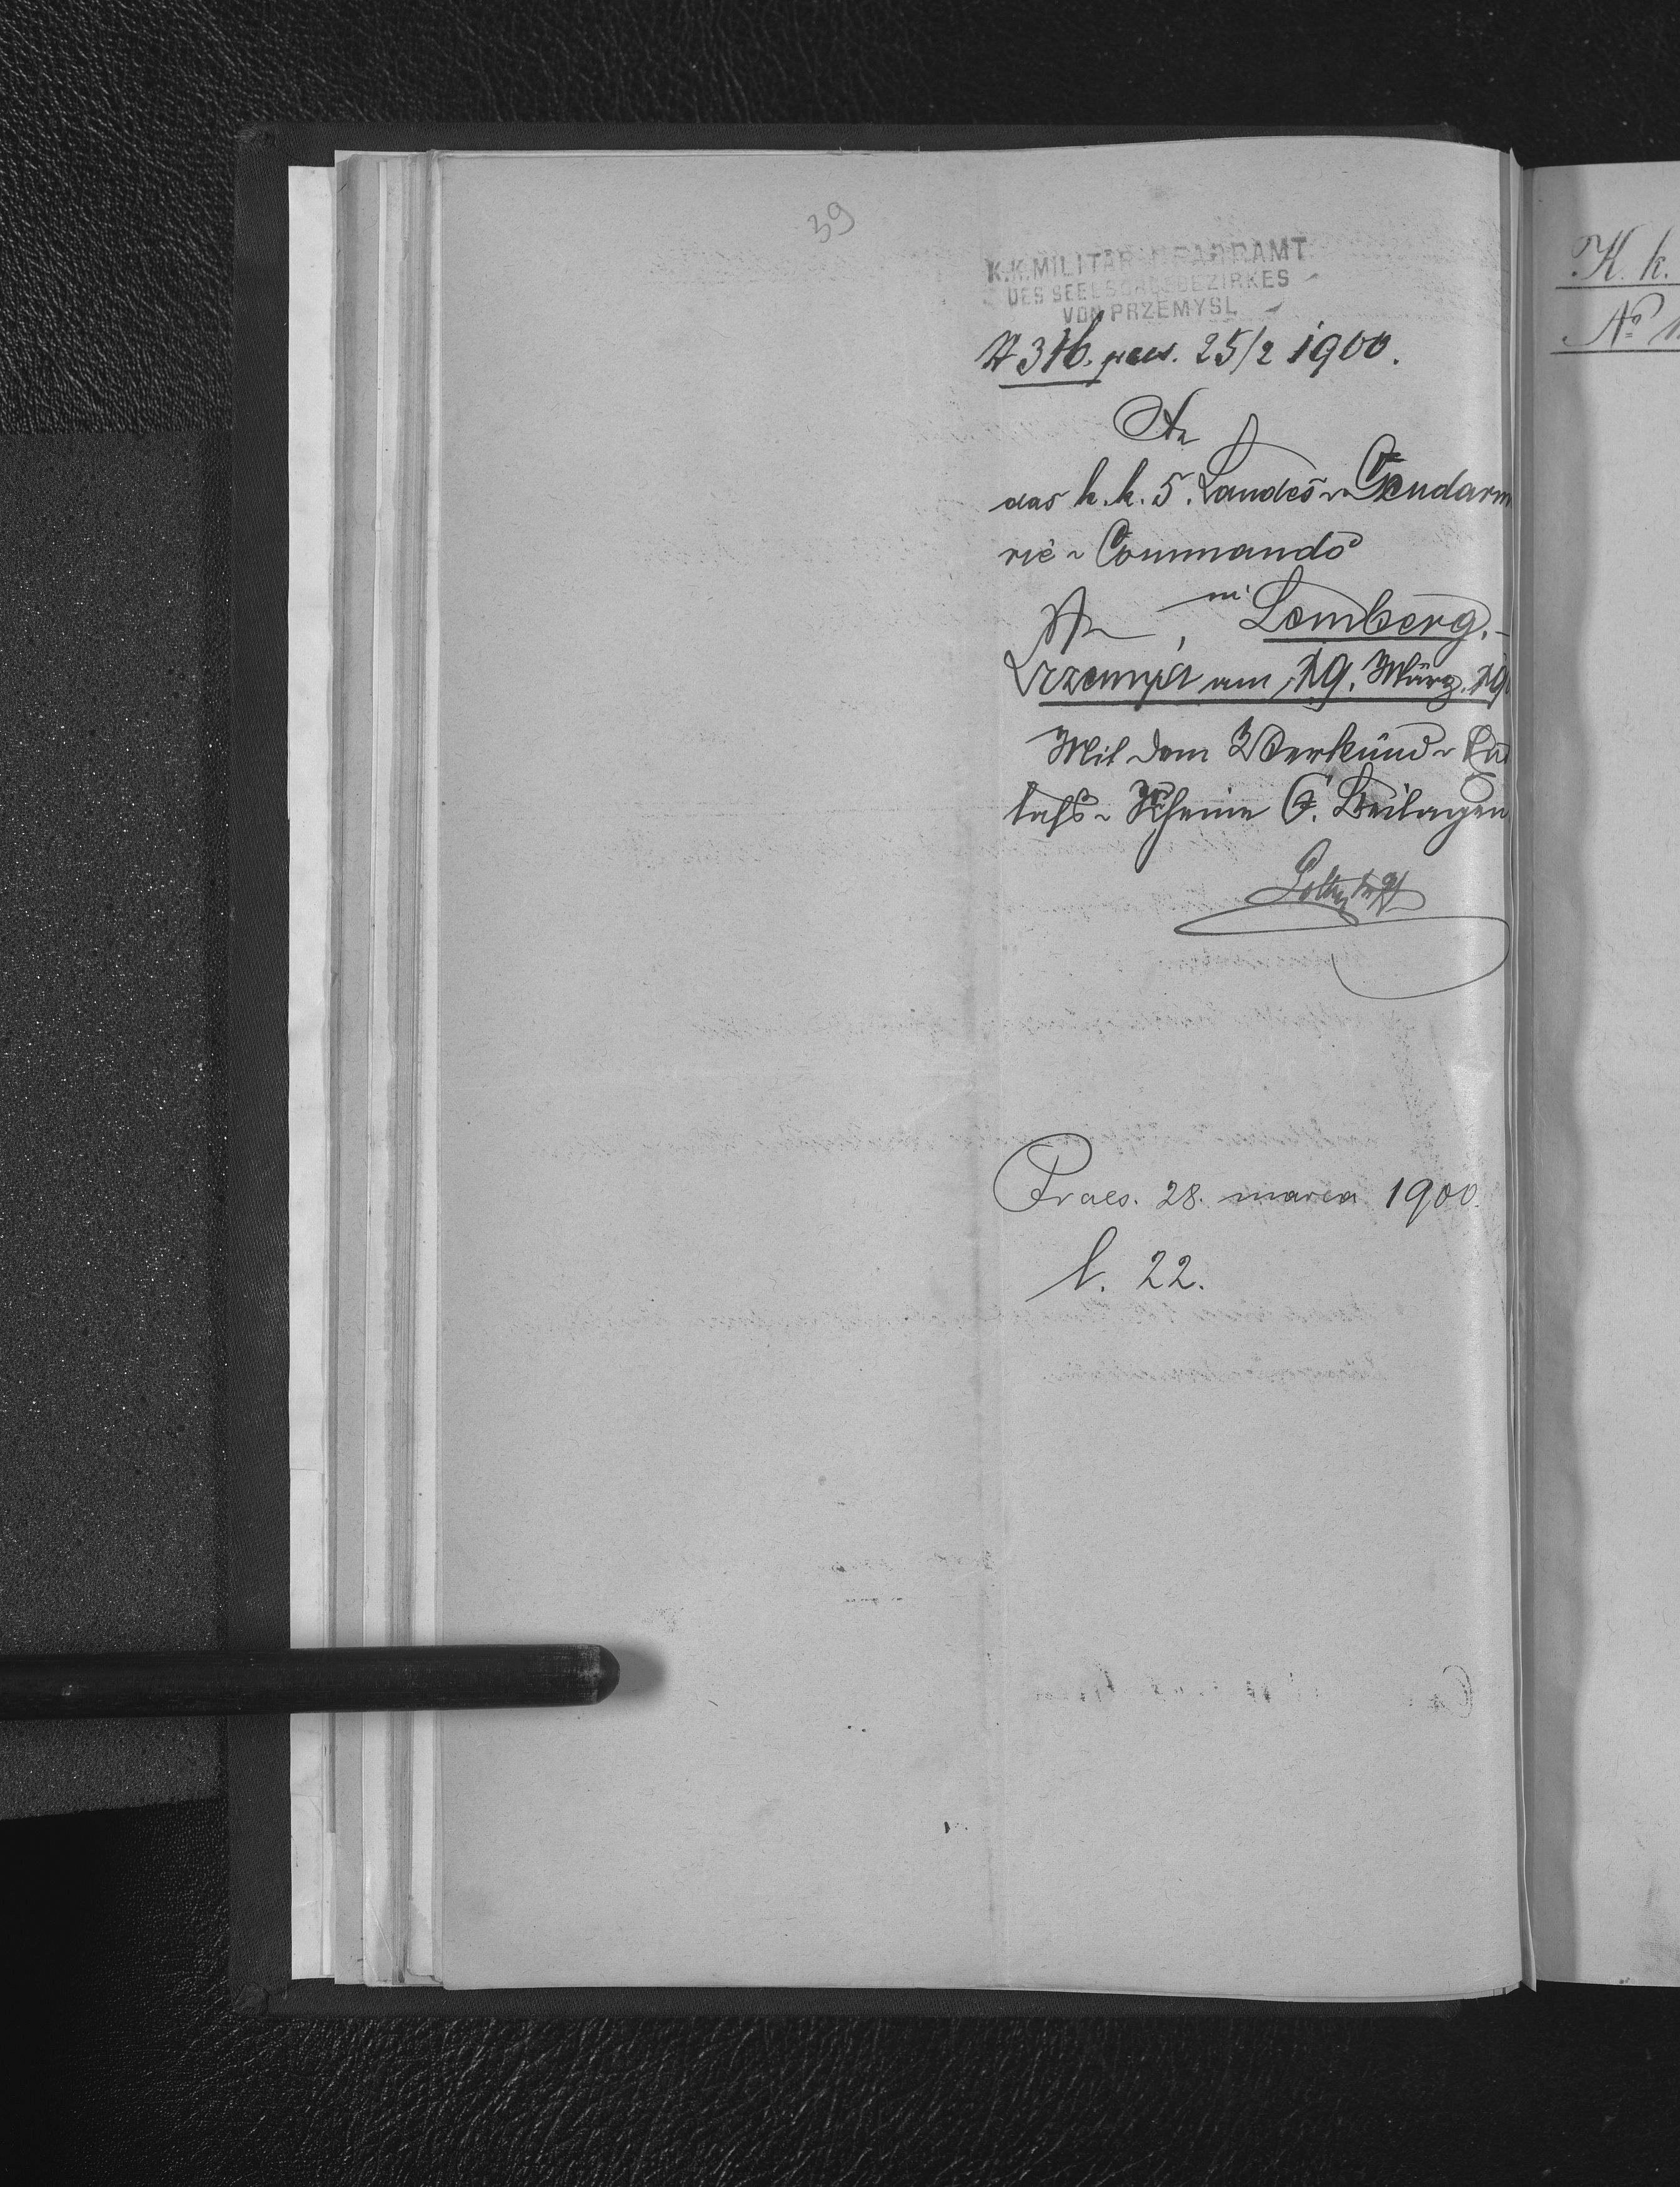 39
K.K. MILITÄR-PFARRAMT
DES SEELSORGEBEZIRKES
VON PRZEMYSL
25/2 1900.
An
das k.k. 5. Landes-Gendarm
rie-Commando
in Lemberg.
Przemyśl am 19. März 19
Mit dem Verkünd-
Scheine 6. Beilagen
Praes. 28. marca 1900.
l. 22.
K. k.
No 1